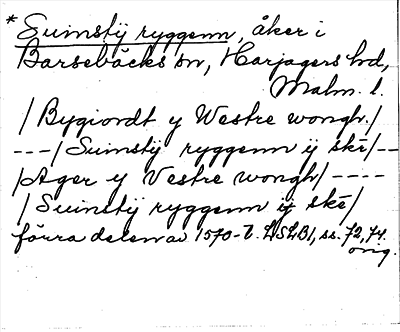 * Suinstÿ ryggenn, åker i
Barsebäcks sn, Harjagers hd,
Malm. l.
/Bygiordt y Westre wongh./
---/Suinstÿ ryggenn ÿ skē/--
/Ager y Vestre wongh/----
/Suinstÿ ryggenn ÿ skē/
förra delen av 1570-t. LSLB1, ss. 72, 74.
orig.